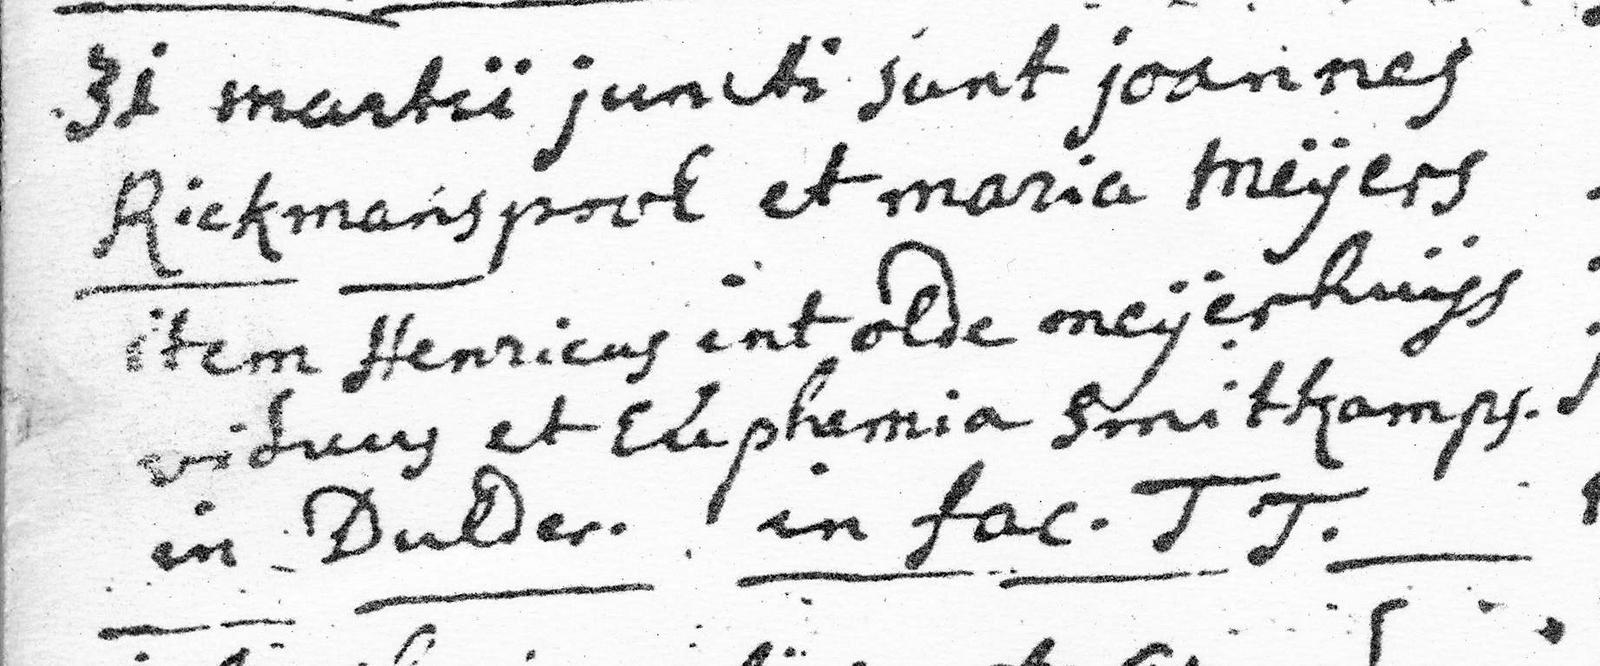 31 martii juncti sunt joannes
Rickmanspoel et maria meÿers
item Henricus int olde meÿerhuÿs
viduus et Euphemia Smitkamps.
in Dulder. in fac. T T.